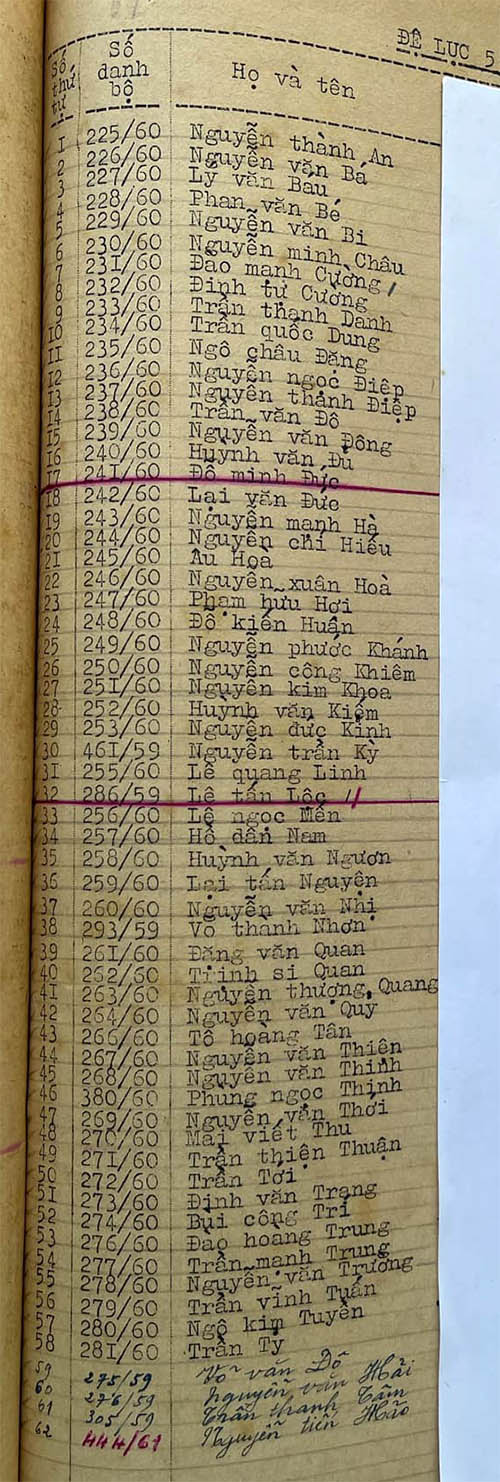 ĐỆ LỤC 5
Số thứ tự Số danh bộ Họ và tên
1 225/60 Nguyễn thành An
2 226/60 Nguyễn văn Bá
3 227/60 Lý văn Báu
4 228/60 Phan văn Bé
5 229/60 Nguyễn văn Bi
6 230/60 Nguyễn minh Châu
7 231/60 Đào mạnh Cường
8 232/60 Đinh tư Cường
9 233/60 Trần thanh Danh
10 234/60 Trần quốc Dung
11 235/60 Ngô châu Đăng
12 236/60 Nguyễn ngọc Điệp
13 237/60 Nguyễn thành Điệp
14 238/60 Trần văn Đô
15 239/60 Nguyễn văn Đông
16 240/60 Huỳnh văn Đủ
17 241/60 Đỗ minh Đức
18 242/60 Lại văn Đức
19 243/60 Nguyễn mạnh Hà
20 244/60 Nguyễn chi Hiếu
21 245/60 Âu Hoà
22 246/60 Nguyễn xuân Hoà
23 247/60 Phạm hưu Hợi
24 248/60 Đỗ kiến Huấn
25 249/60 Nguyễn phước Khánh
26 250/60 Nguyễn công Khiêm
27 251/60 Nguyễn kim Khoa
28 252/60 Huỳnh văn Kiểm
29 253/60 Nguyễn đức Kỉnh
30 461/59 Nguyễn trần Kỳ
31 255/60 Lê quang Linh
32 286/59 Lê tấn Lộc
33 256/60 Lê ngọc Mến
34 257/60 Hồ dân Nam
35 258/60 Huỳnh văn Ngươn
36 259/60 Lại tấn Nguyện
37 260/60 Nguyễn văn Nhị
38 293/59 Võ thành Nhơn
39 261/60 Đăng văn Quan
40 262/60 Trịnh si Quan
41 263/60 Nguyễn thượng Quang
42 264/60 Nguyễn văn Quy
43 266/60 Tô hoàng Tân
44 267/60 Nguyễn văn Thiện
45 268/60 Nguyễn văn Thinh
46 380/60 Phùng ngọc Thịnh
47 269/60 Nguyễn văn Thới
48 270/60 Mai viết Thu
49 271/60 Trần thiện Thuận
50 272/60 Trần Tới
51 273/60 Định văn Trang
52 274/60 Bùi công Trí
53 276/60 Đào hoàng Trung
54 277/60 Trần mạnh Trung
55 278/60 Nguyễn văn Trương
56 279/60 Trần vĩnh Tuấn
57 280/60 Ngô kim Tuyền
58 281/60 Trần Ty
59 275/59 Võ văn Đô
60 276/59 Nguyễn văn Hải
61 305/59 Trần thanh Tâm
62 444/61 Nguyễn tiến Hảo